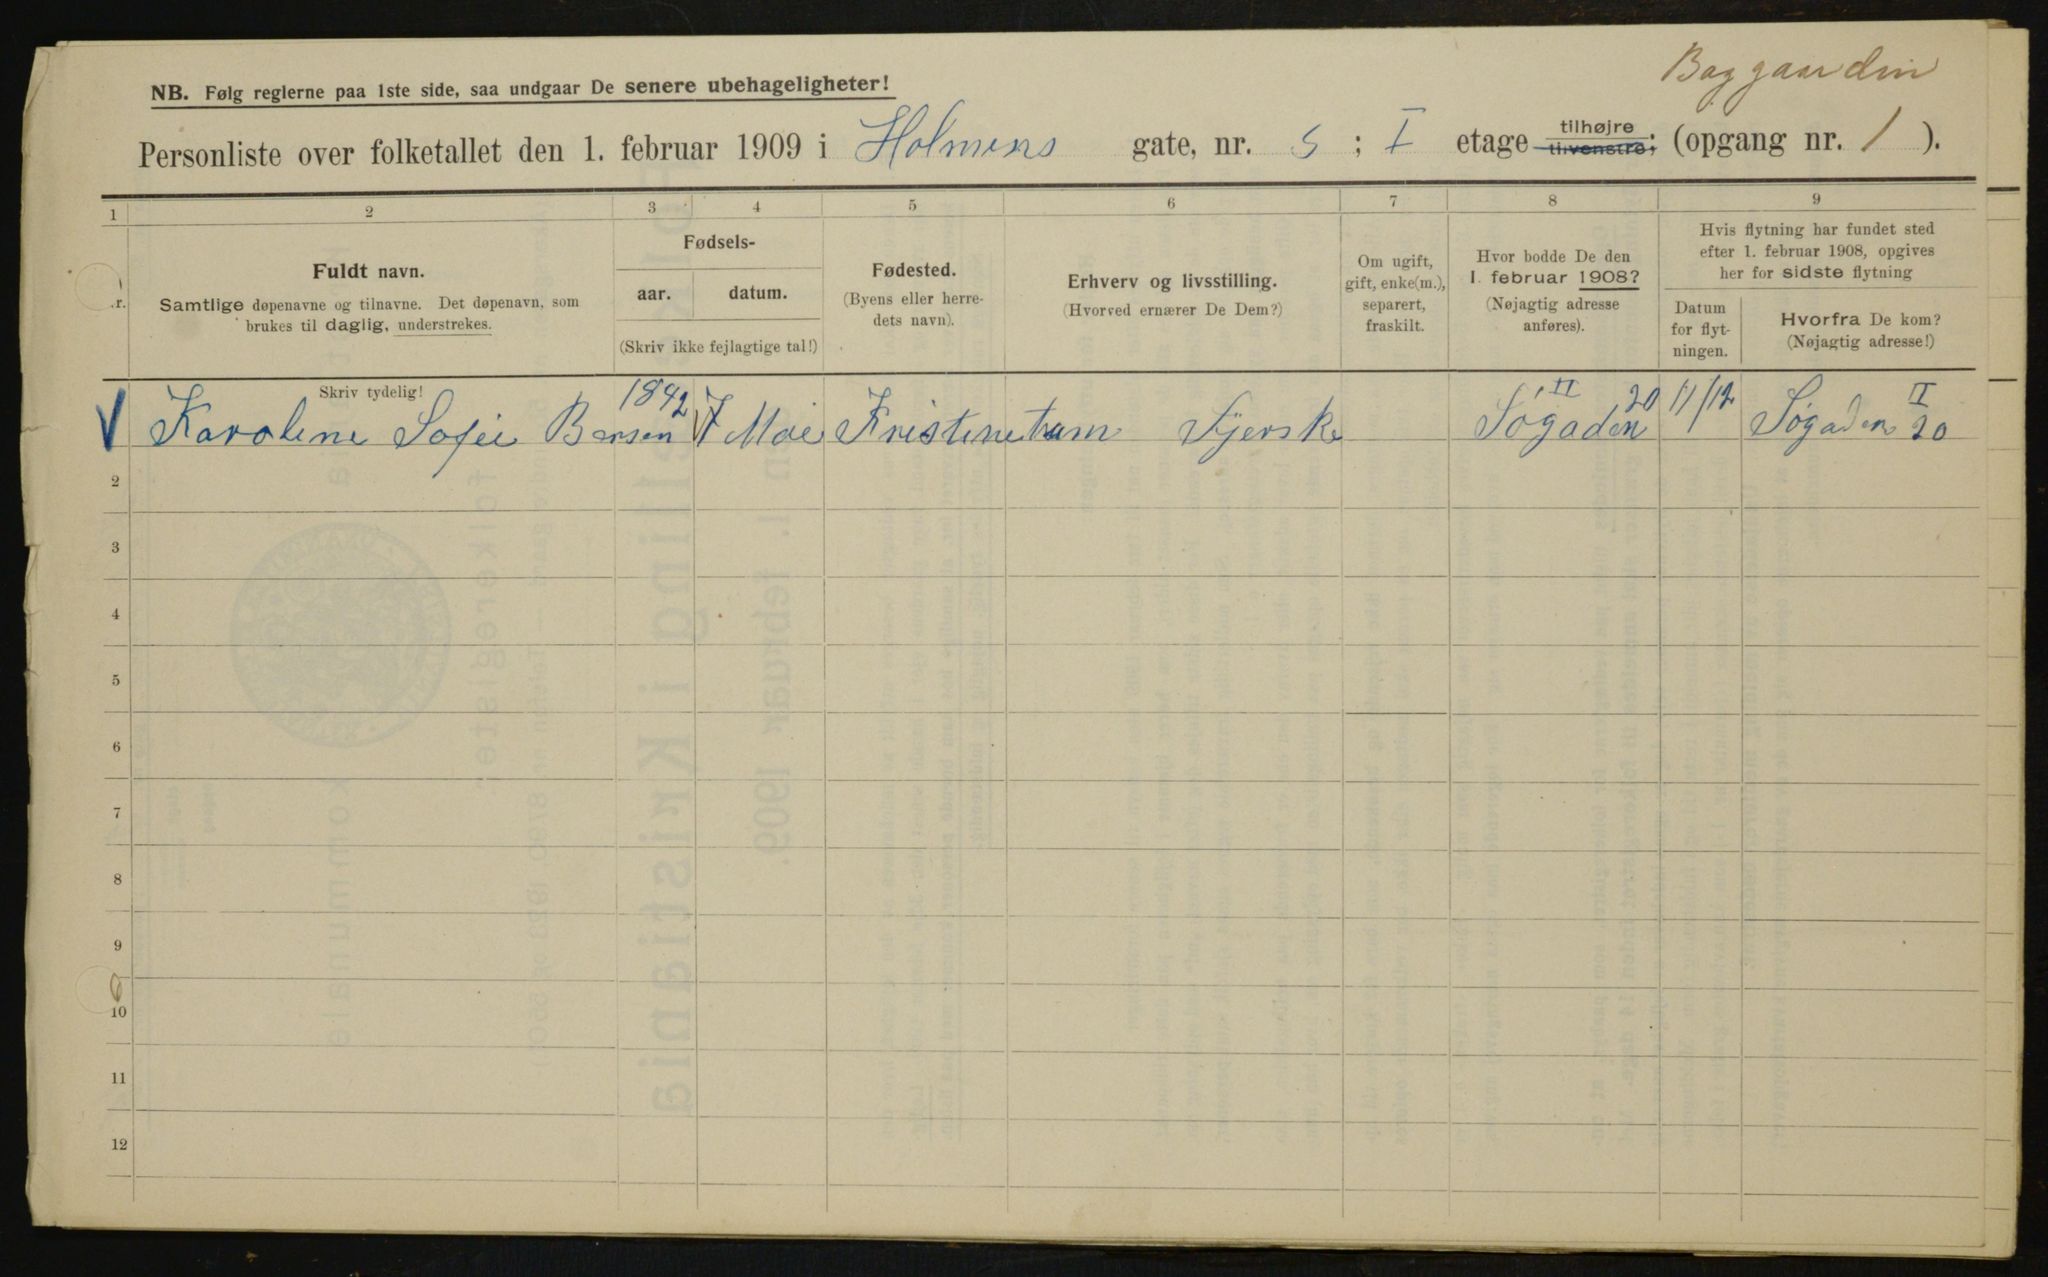 Baggaardin
NB. Følg reglerne paa 1ste side, saa undgaar De senere ubehageligheter!
Personliste over folketallet den 1. februar 1909 i Holmens gate, nr. 5 ; I etage tilhøjre tilvenstre; (opgang nr. 1 ).
1 2 3 4 5 6 7 8 9
Nr.
Fuldt navn.
Samtlige døpenavne og tilnavne. Det døpenavn, som
brukes til daglig, understrekes.
Fødsels-
aar. datum.
(Skriv ikke fejlagtige tal!)
Fødested.
(Byens eller herre-
dets navn).
Erhverv og livsstilling.
(Hvorved ernærer De Dem?)
Om ugift,
gift, enke(m.),
separert,
fraskilt.
Hvor bodde De den
1. februar 1908?
(Nøjagtig adresse
anføres).
Hvis flytning har fundet sted
efter 1. februar 1908, opgives
her for sidste flytning
Datum
for flyt-
ningen.
Hvorfra De kom?
(Nøjagtig adresse!)
Skriv tydelig!
Karoline Sofie 1842 7 Mai Søgaden II 20 11/12 Søgaden II 20
2
3
4
5
6
7
8
9
10
11
12